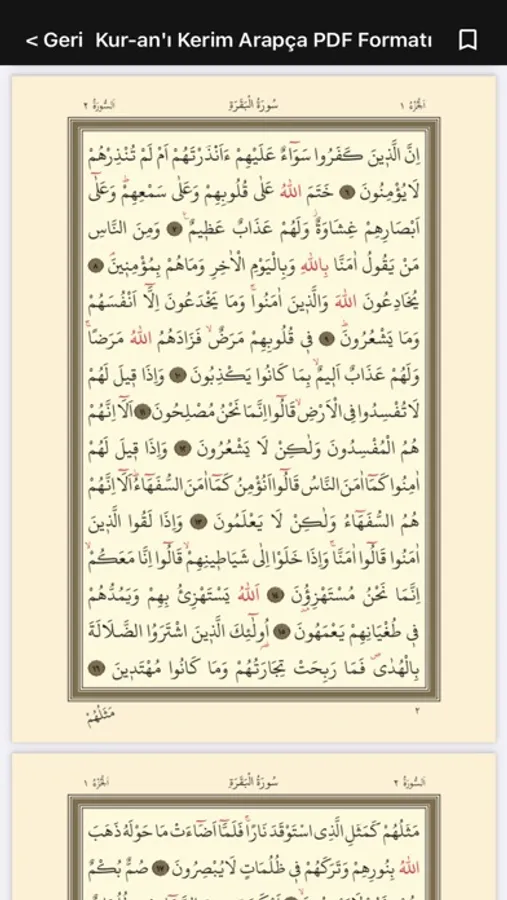 < Geri Kur-an'ı Kerim Arapça PDF Formatı
اَلْجُزْءُ ١ سُورَةُ الْبَقَرَةِ اَلسُّورَةُ ٢
اِنَّ الَّذِينَ كَفَرُوا سَوَٓاءٌ عَلَيْهِمْ ءَاَنْذَرْتَهُمْ اَمْ لَمْ تُنْذِرْهُمْ
لَا يُؤْمِنُونَ ٦ خَتَمَ اللّٰهُ عَلٰى قُلُوبِهِمْ وَعَلٰى سَمْعِهِمْۜ وَعَلٰٓى
اَبْصَارِهِمْ غِشَاوَةٌۘ وَلَهُمْ عَذَابٌ عَظِيمٌ۟ ٧ وَمِنَ النَّاسِ
مَنْ يَقُولُ اٰمَنَّا بِاللّٰهِ وَبِالْيَوْمِ الْاٰخِرِ وَمَاهُمْ بِمُؤْمِنِينَۢ ٨
يُخَادِعُونَ اللّٰهَ وَالَّذِينَ اٰمَنُواۚ وَمَا يَخْدَعُونَ اِلَّٓا اَنْفُسَهُمْ
وَمَا يَشْعُرُونَۜ ٩ فِي قُلُوبِهِمْ مَرَضٌۙ فَزَادَهُمُ اللّٰهُ مَرَضًاۚ
وَلَهُمْ عَذَابٌ اَلِيمٌۙ بِمَا كَانُوا يَكْذِبُونَ ١٠ وَاِذَا قِيلَ لَهُمْ
لَا تُفْسِدُوا فِي الْاَرْضِۙ قَالُٓوا اِنَّمَا نَحْنُ مُصْلِحُونَ ١١ اَلَٓا اِنَّهُمْ
هُمُ الْمُفْسِدُونَ وَلٰكِنْ لَا يَشْعُرُونَ ١٢ وَاِذَا قِيلَ لَهُمْ
اٰمِنُوا كَمَٓا اٰمَنَ النَّاسُ قَالُٓوا اَنُؤْمِنُ كَمَٓا اٰمَنَ السُّفَهَٓاءُۜ اَلَٓا اِنَّهُمْ
هُمُ السُّفَهَٓاءُ وَلٰكِنْ لَا يَعْلَمُونَ ١٣ وَاِذَا لَقُوا الَّذِينَ
اٰمَنُوا قَالُٓوا اٰمَنَّاۚ وَاِذَا خَلَوْا اِلٰى شَيَاطِينِهِمْۙ قَالُٓوا اِنَّا مَعَكُمْۙ
اِنَّمَا نَحْنُ مُسْتَهْزِؤُ۫نَ ١٤ اَللّٰهُ يَسْتَهْزِئُ بِهِمْ وَيَمُدُّهُمْ
فِي طُغْيَانِهِمْ يَعْمَهُونَ ١٥ اُو۬لٰٓئِكَ الَّذِينَ اشْتَرَوُا الضَّلَالَةَ
بِالْهُدٰىۖ فَمَا رَبِحَتْ تِجَارَتُهُمْ وَمَا كَانُوا مُهْتَدِينَ ١٦
٢ مَثَلُهُمْ
اَلسُّورَةُ ٢ سُورَةُ الْبَقَرَةِ اَلْجُزْءُ ١
مَثَلُهُمْ كَمَثَلِ الَّذِي اسْتَوْقَدَ نَارًاۚ فَلَمَّٓا اَضَٓاءَتْ مَا حَوْلَهُ ذَهَبَ
اللّٰهُ بِنُورِهِمْ وَتَرَكَهُمْ فِي ظُلُمَاتٍ لَا يُبْصِرُونَ ١٧ صُمٌّ بُكْمٌ